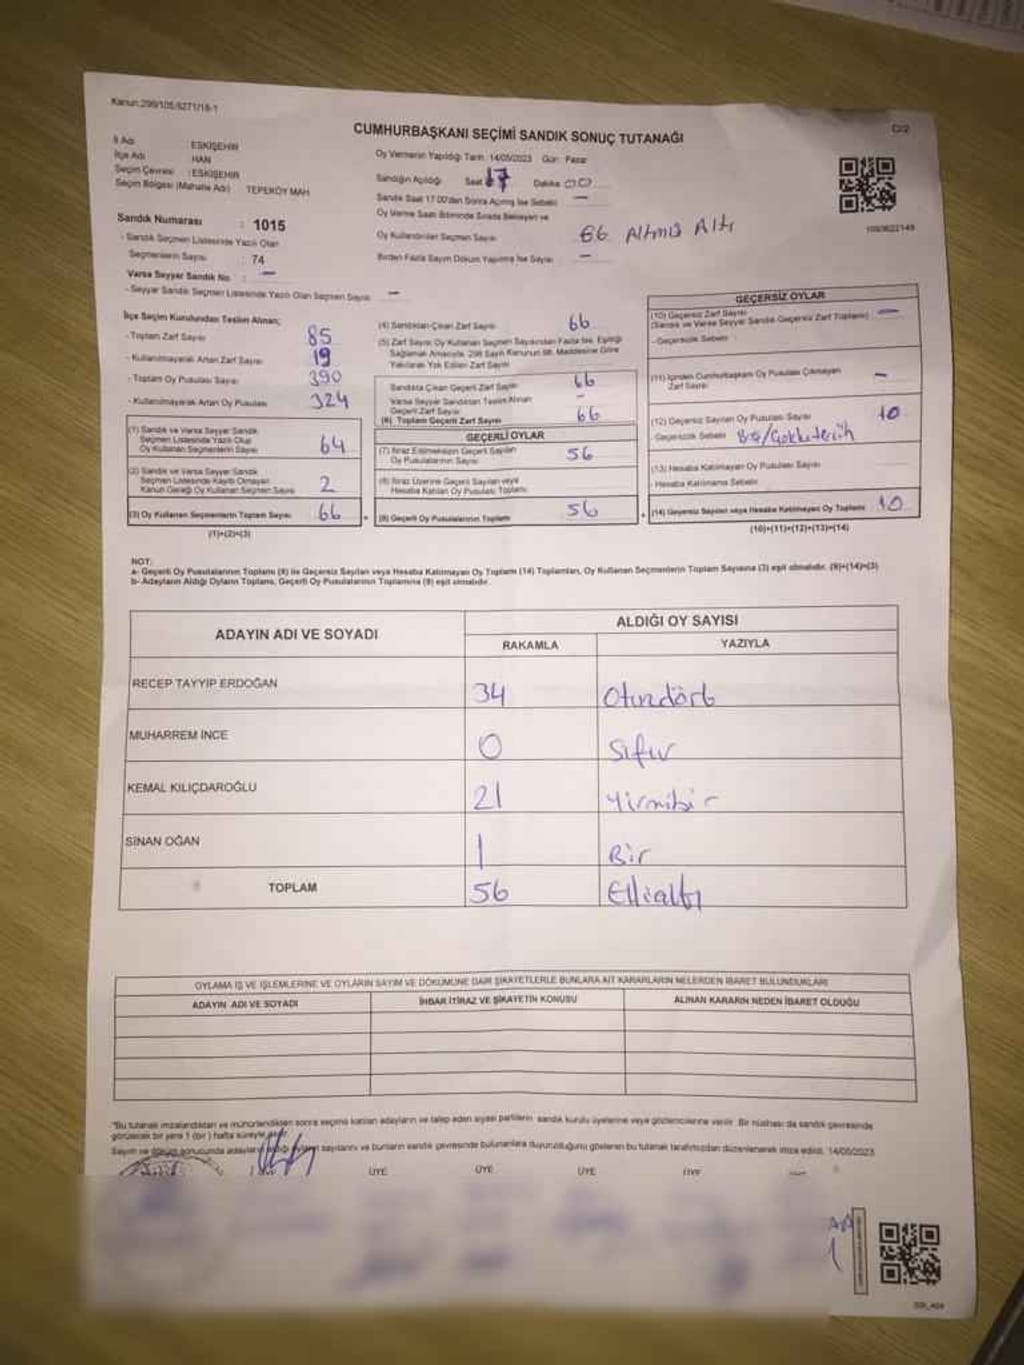 Kanun:298/105,6271/18-1
CUMHURBAŞKANI SEÇİMİ SANDIK SONUÇ TUTANAĞI
C/2
İl Adı : ESKİŞEHİR
İlçe Adı : HAN
Seçim Çevresi : ESKİŞEHİR
Seçim Bölgesi (Mahalle Adı) TEPEKÖY MAH
Sandık Numarası : 1015
- Sandık Seçmen Listesinde Yazılı Olan
Seçmenlerin Sayısı : 74
Varsa Seyyar Sandık No : —
- Seyyar Sandık Seçmen Listesinde Yazılı Olan Seçmen Sayısı —
Oy Vermenin Yapıldığı Tarih: 14/05/2023 Gün: Pazar
Sandığın Açıldığı Saat 17 Dakika 00
Sandık Saat 17.00'den Sonra Açılmış İse Sebebi —
Oy Verme Saati Bitiminde Sırada Bekleyen ve
Oy Kullandırılan Seçmen Sayısı 66 Altmış Altı
Birden Fazla Sayım Döküm Yapılmış İse Sayısı —
1093622149
İlçe Seçim Kurulundan Teslim Alınan;
- Toplam Zarf Sayısı 85
- Kullanılmayarak Artan Zarf Sayısı 19
- Toplam Oy Pusulası Sayısı 390
- Kullanılmayarak Artan Oy Pusulası 324
(1) Sandık ve Varsa Seyyar Sandık
Seçmen Listesinde Yazılı Olup
Oy Kullanan Seçmenlerin Sayısı 64
(2) Sandık ve Varsa Seyyar Sandık
Seçmen Listesinde Kayıtlı Olmayan
Kanun Gereği Oy Kullanan Seçmen Sayısı 2
(3) Oy Kullanan Seçmenlerin Toplam Sayısı 66
(1)+(2)=(3)
(4) Sandıktan Çıkan Zarf Sayısı 66
(5) Zarf Sayısı Oy Kullanan Seçmen Sayısından Fazla İse, Eşitliği
Sağlamak Amacıyla, 298 Sayılı Kanunun 98. Maddesine Göre
Yakılarak Yok Edilen Zarf Sayısı
Sandıkta Çıkan Geçerli Zarf Sayısı 66
Varsa Seyyar Sandıktan Teslim Alınan
Geçerli Zarf Sayısı -
(6) Toplam Geçerli Zarf Sayısı 66
GEÇERLİ OYLAR
(7) İtiraz Edilmeksizin Geçerli Sayılan
Oy Pusulalarının Sayısı 56
(8) İtiraz Üzerine Geçerli Sayılan veya
Hesaba Katılan Oy Pusulası Toplamı
(9) Geçerli Oy Pusulalarının Toplamı 56
GEÇERSİZ OYLAR
(10) Geçersiz Zarf Sayısı
(Sandık ve Varsa Seyyar Sandık Geçersiz Zarf Toplamı) —
- Geçersizlik Sebebi
(11) İçinden Cumhurbaşkanı Oy Pusulası Çıkmayan
Zarf Sayısı —
(12) Geçersiz Sayılan Oy Pusulası Sayısı 10
- Geçersizlik Sebebi
(13) Hesaba Katılmayan Oy Pusulası Sayısı
- Hesaba Katılmama Sebebi
(14) Geçersiz Sayılan veya Hesaba Katılmayan Oy Toplamı 10
(10)+(11)+(12)+(13)=(14)
NOT:
a- Geçerli Oy Pusulalarının Toplamı (9) ile Geçersiz Sayılan veya Hesaba Katılmayan Oy Toplamı (14) Toplamları, Oy Kullanan Seçmenlerin Toplam Sayısına (3) eşit olmalıdır. (9)+(14)=(3)
b- Adayların Aldığı Oyların Toplamı, Geçerli Oy Pusulalarının Toplamına (9) eşit olmalıdır.
ADAYIN ADI VE SOYADI
ALDIĞI OY SAYISI
RAKAMLA YAZIYLA
RECEP TAYYİP ERDOĞAN 34 Otuzdört
MUHARREM İNCE 0 Sıfır
KEMAL KILIÇDAROĞLU 21 Yirmibir
SİNAN OĞAN 1 Bir
TOPLAM 56 Ellialtı
OYLAMA İŞ VE İŞLEMLERİNE VE OYLARIN SAYIM VE DÖKÜMÜNE DAİR ŞİKAYETLERLE BUNLARA AİT KARARLARIN NELERDEN İBARET BULUNDUKLARI
ADAYIN ADI VE SOYADI İHBAR İTİRAZ VE ŞİKAYETİN KONUSU ALINAN KARARIN NEDEN İBARET OLDUĞU
"Bu tutanak imzalandıktan ve mühürlendikten sonra seçime katılan adayların ve talep eden siyasi partilerin sandık kurulu üyelerine veya gözlemcilerine verilir. Bir nüshası da sandık çevresinde
görülecek bir yere 1 (bir) hafta süreyle
Sayım ve döküm sonucunda adayların aldığı oyların sayılarını ve bunların sandık çevresinde bulunanlara duyurulduğunu gösteren bu tutanak tarafımızdan düzenlenerek imza edildi. 14/05/2023
ÜYE ÜYE ÜYE ÜYE